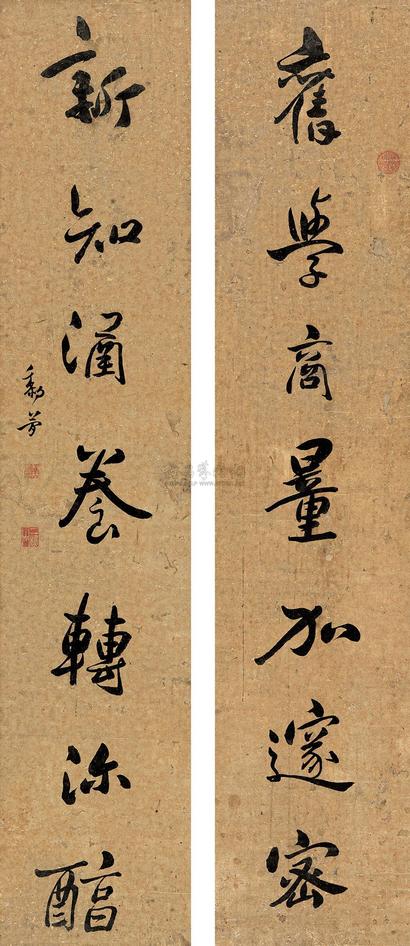 舊學商量加邃密
新知涵養轉深醇